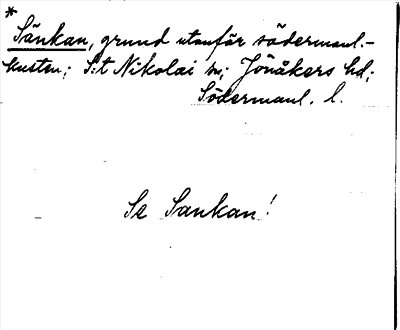 * Sänkan, grund utanför södermanl.-
kusten; S:t Nikolai sn; Jönåkers hd;
Södermanl. l.
Se Sankan!